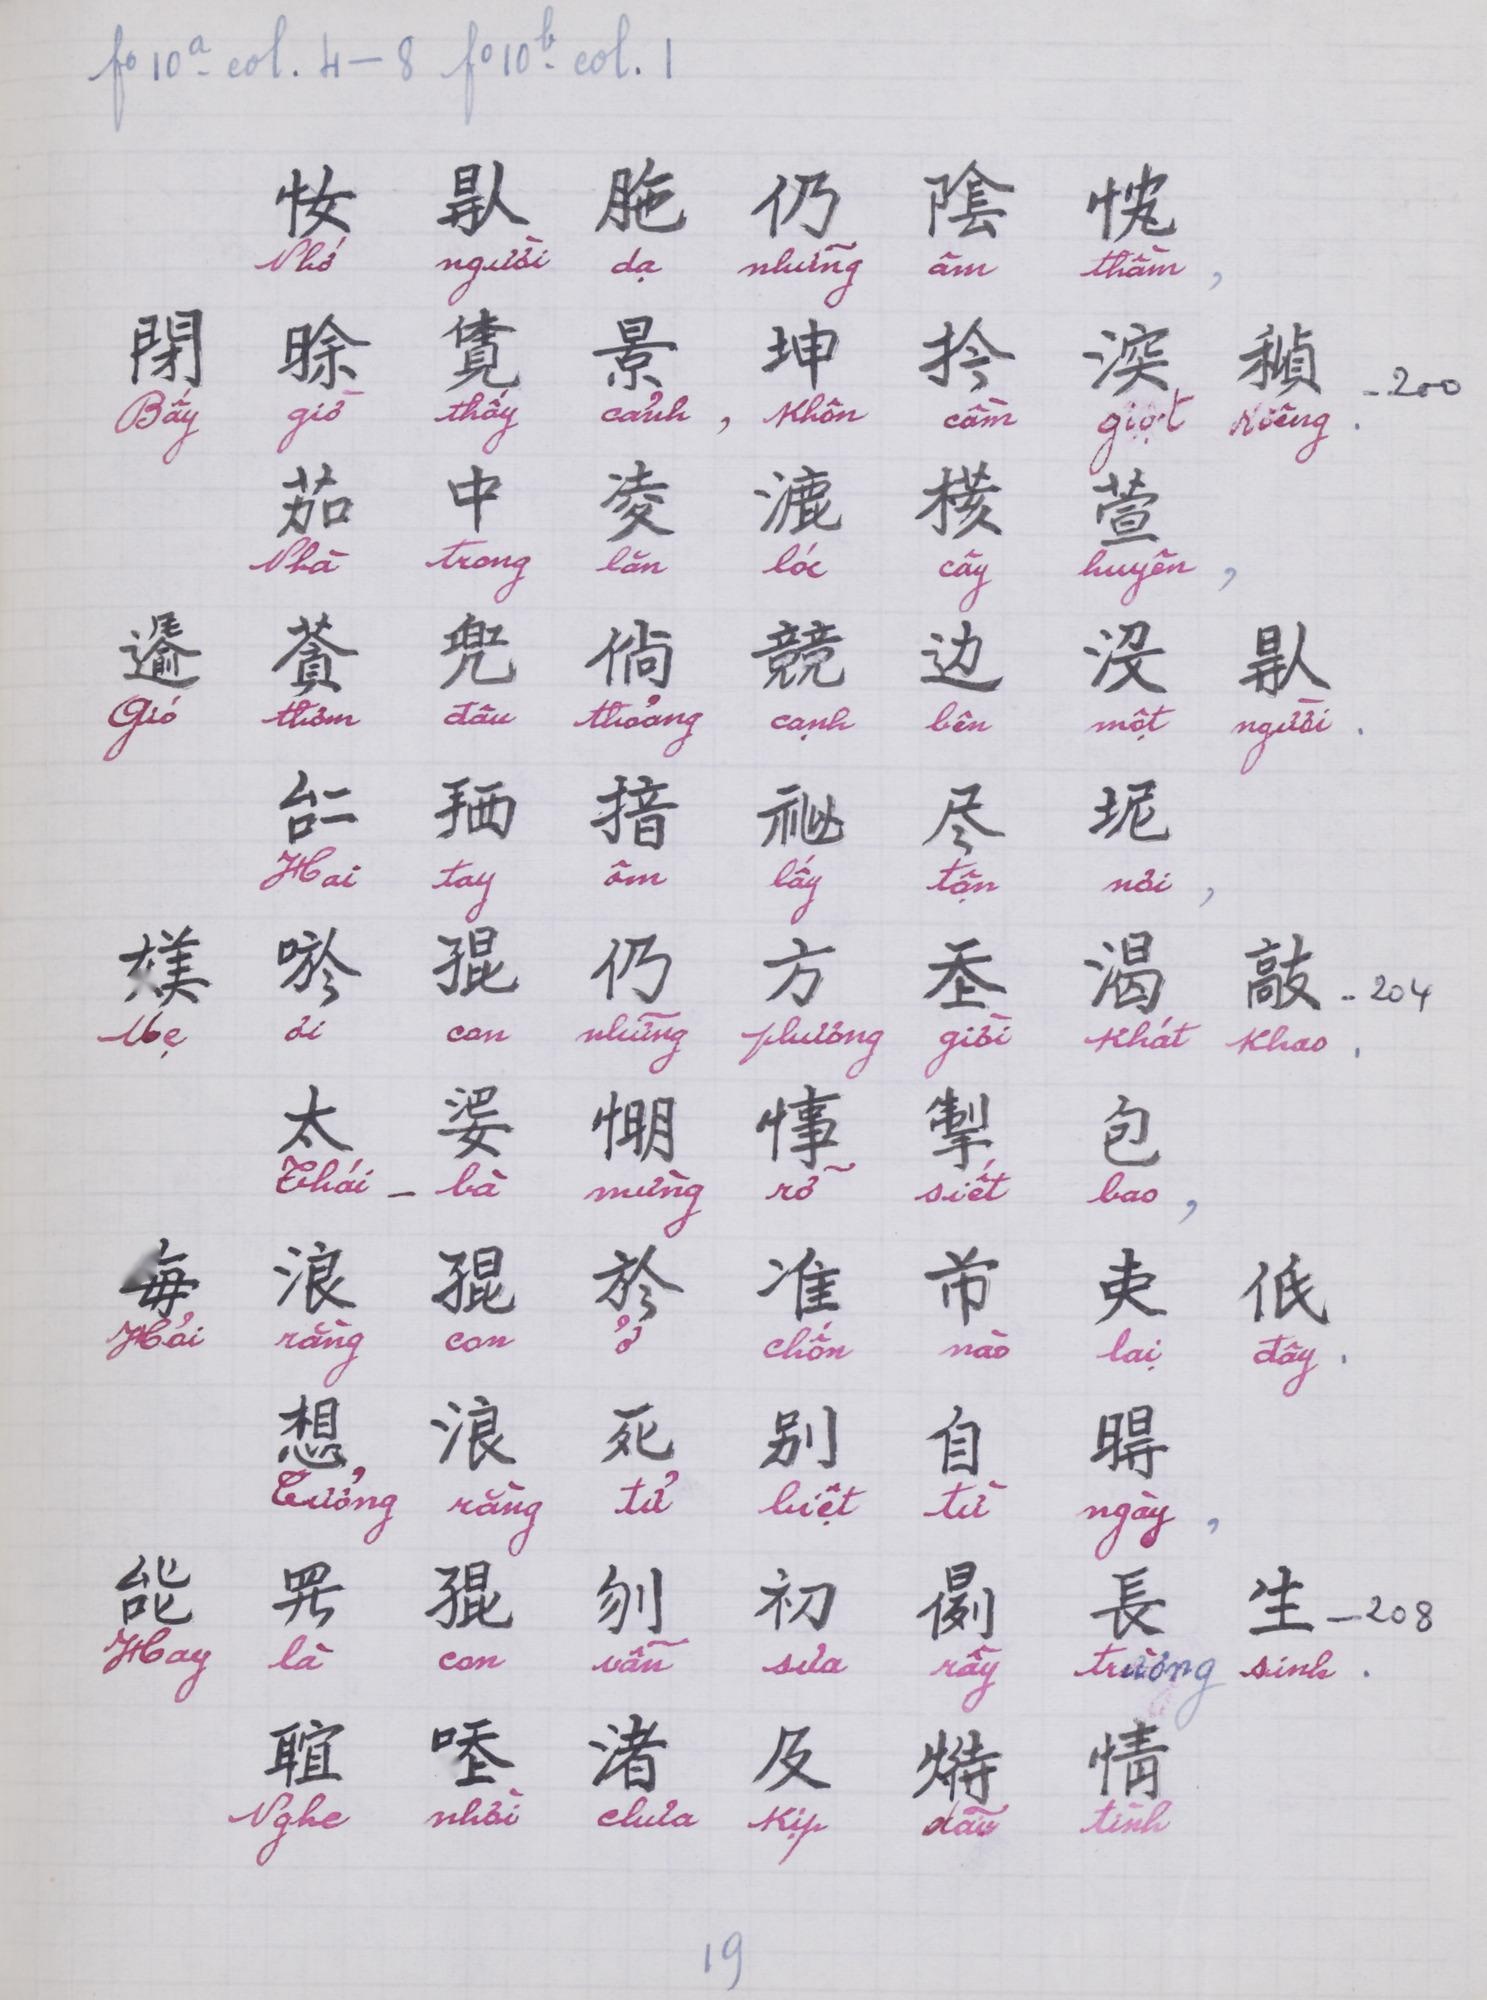 fo 10a- col. 4-8 fo 10b- col. 1
仍 陰
Nhớ người dạ những âm thầm,
閉 景 坤 扲 -200
Bấy giờ thấy cảnh, khôn cầm giọt riêng.
茄 中 凌 漉 萱
Nhà trong lăn lóc cây huyên,
兜 倘 競 边 没
Gió thơm đâu thoảng cạnh bên một người.
𠄩 揞 尽 坭
Hai tay ôm lấy tận nơi,
媄 唹 𡥵 仍 方 𡗶 渴 敲 -204
Mẹ ơi con những phương giời khát khao.
太 掣 包
Thái - bà mừng rỡ siết bao,
每 浪 𡥵 於 准 芇 吏 低
Hỏi rằng con ở chốn nào lại đây.
想 浪 死 别 自 𣈜
Tưởng rằng tử biệt từ ngày,
𡥵 刎 初 長 生 -208
Hay là con vẫn sưa rầy trường sinh.
渚 及 情
Nghe nhời chưa kịp dãi tình
19